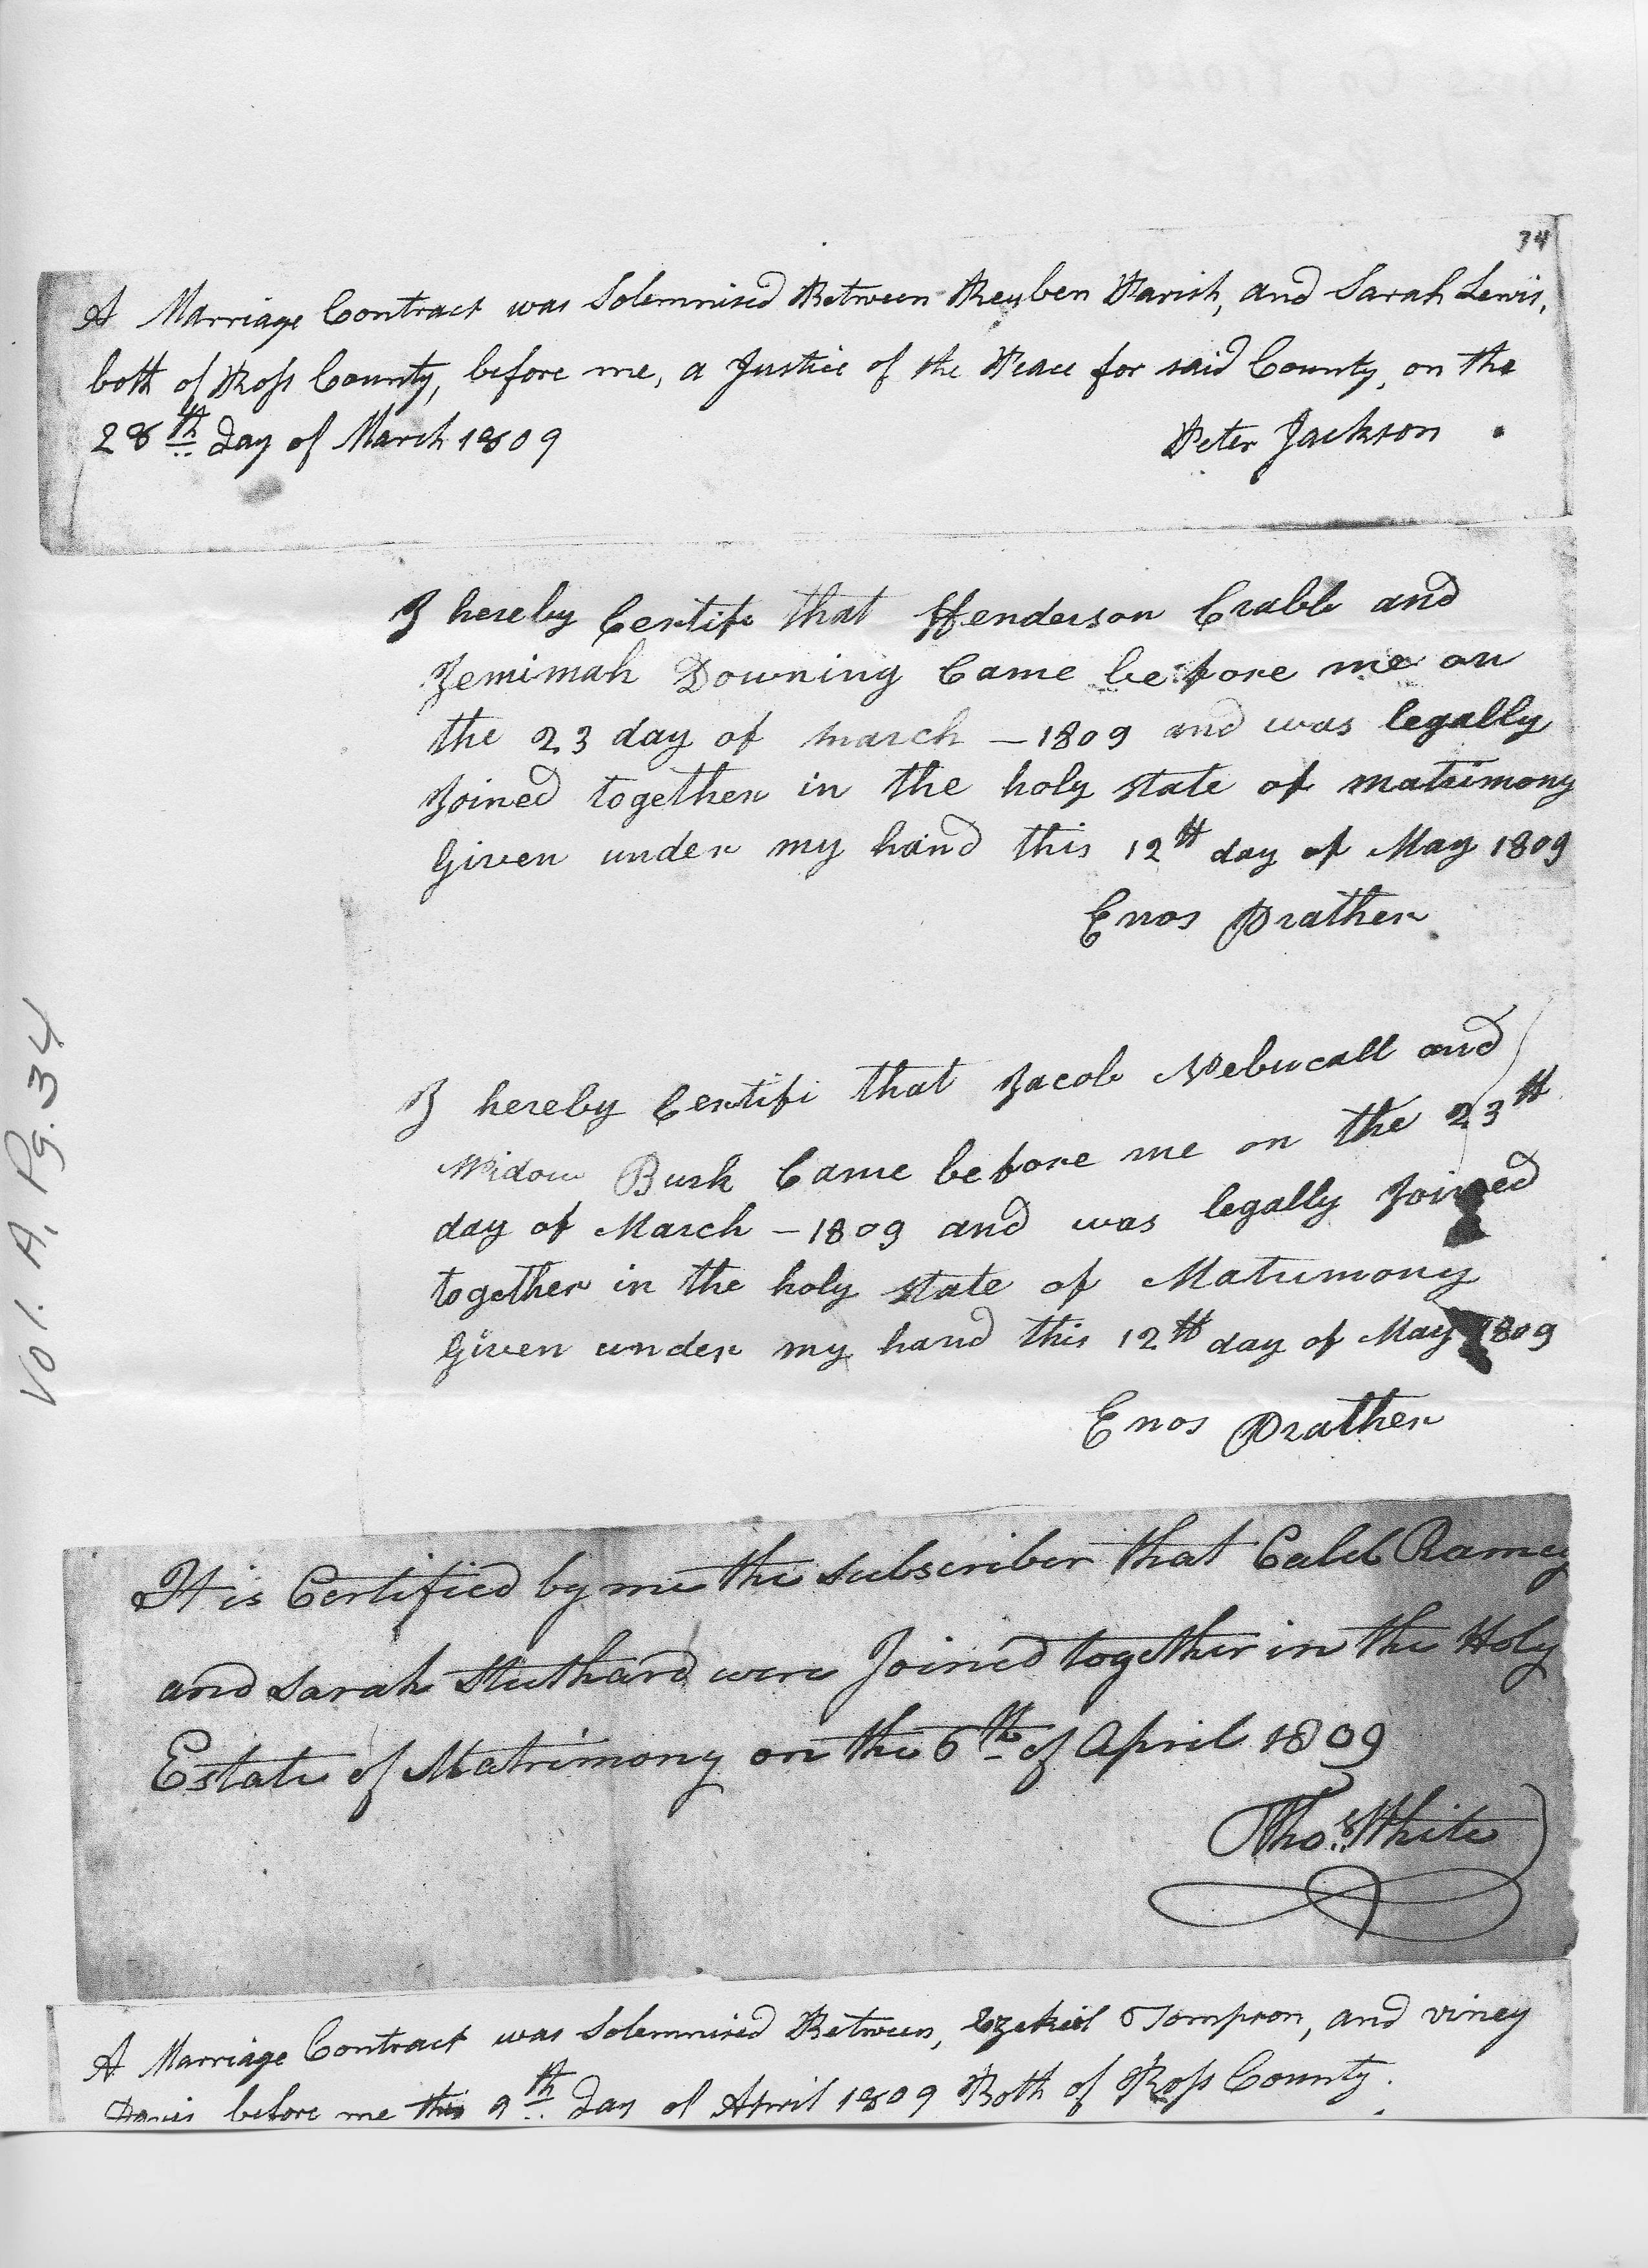 34
A Marriage Contract was Solemnised Between Reuben Parish, and Sarah Lewis,
both of Ross County, before me, a Justice of the Peace for said County, on the
28th day of March 1809
Peter Jackson
I hereby Certifi that Henderson Crabb and
Jemimah Downing Came before me on
the 23 day of march – 1809 and was legally
Joined together in the holy state of matrimony
Given under my hand this 12th day of May 1809
Enos Prather
I hereby Certifi that Jacob and
Widow Bush Came before me on the 23th
day of March – 1809 and was legally Joined
together in the holy state of Matrimony
Given under my hand this 12th day of May 1809
Enos Prather
Vol. A, Pg. 34
It is Certified by me the subscriber that Caleb Ramey
and Sarah Stuthard were Joined together in the Holy
Estate of Matrimony on the 6th of April 1809
Thos. White
A Marriage Contract was Solemnised Between, Ezekiel Tompson, and viney
Davis before me this 9th day of April 1809 Both of Ross County.